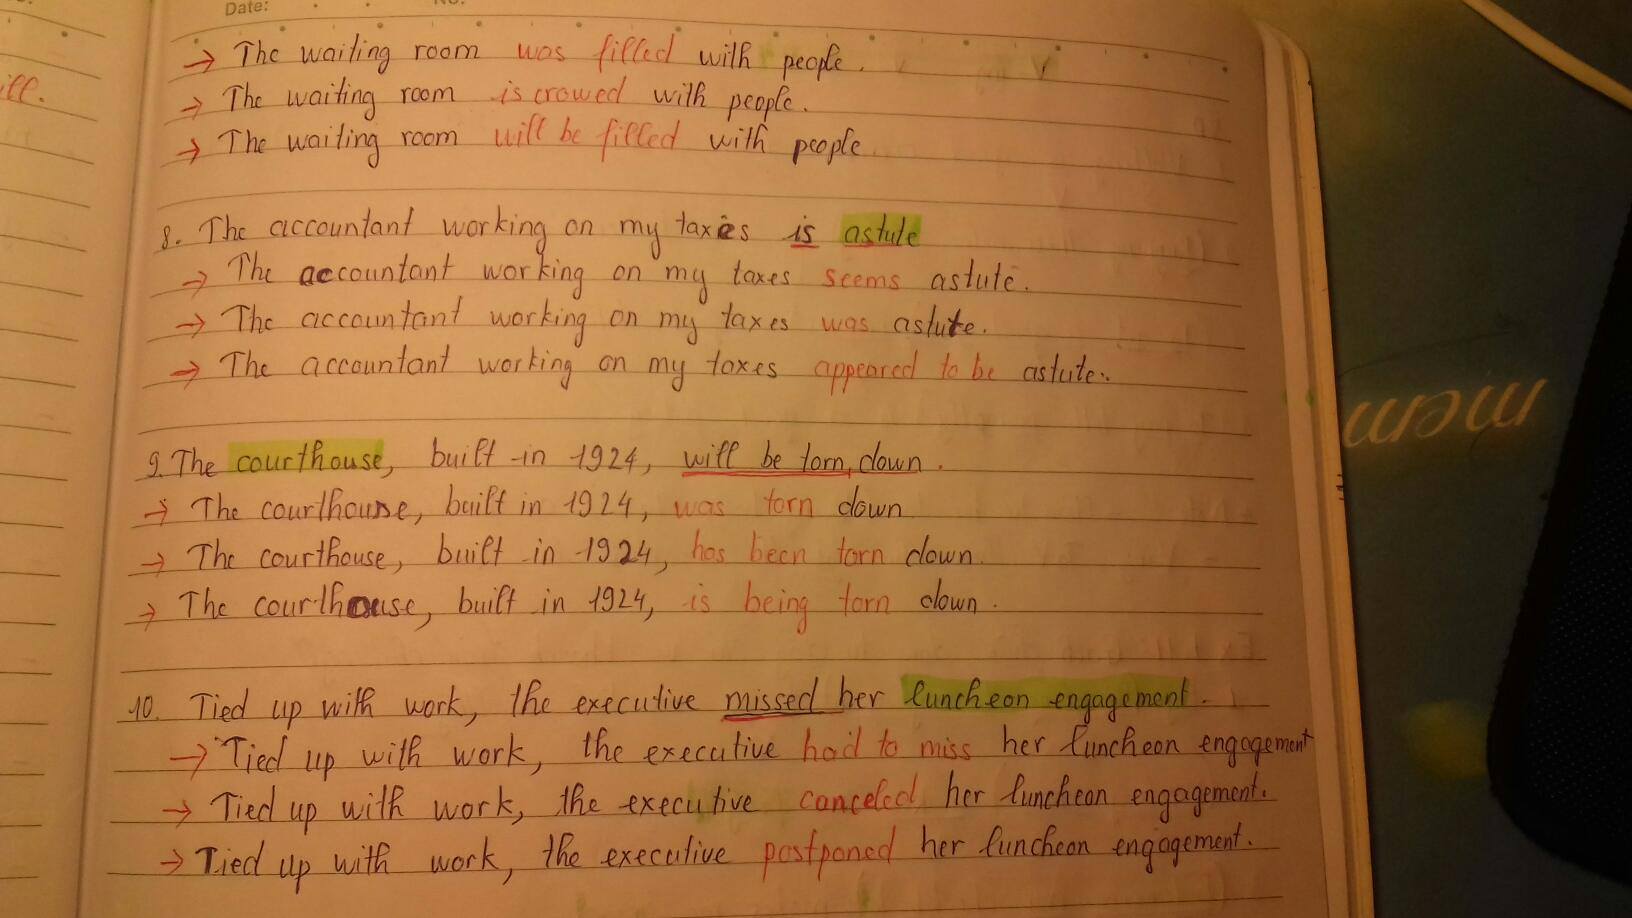 Date: No:
ill.
→ The waiting room was filled with people.
→ The waiting room is crowed with people.
→ The waiting room will be filled with people
8. The accountant working on my taxes is astute
→ The accountant working on my taxes seems astute.
→ The accountant working on my taxes was astute.
→ The accountant working on my taxes appeared to be astute.
9. The courthouse, built in 1924, will be torn down.
→ The courthouse, built in 1924, was torn down
→ The courthouse, built in 1924, has been torn down.
→ The courthouse, built in 1924, is being torn down.
10. Tied up with work, the executive missed her luncheon engagement.
→ Tied up with work, the executive had to miss her luncheon engagement
→ Tied up with work, the executive canceled her luncheon engagement.
→ Tied up with work, the executive postponed her luncheon engagement.